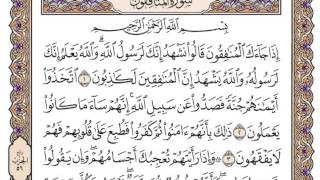 سورة المنافقون
بِسْمِ اللَّهِ الرَّحْمَٰنِ الرَّحِيمِ
إِذَا جَاءَكَ الْمُنَافِقُونَ قَالُوا نَشْهَدُ إِنَّكَ لَرَسُولُ اللَّهِ وَاللَّهُ يَعْلَمُ إِنَّكَ
لَرَسُولُهُ وَاللَّهُ يَشْهَدُ إِنَّ الْمُنَافِقِينَ لَكَاذِبُونَ ۝١ اتَّخَذُوا
أَيْمَانَهُمْ جُنَّةً فَصَدُّوا عَن سَبِيلِ اللَّهِ إِنَّهُمْ سَاءَ مَا كَانُوا
يَعْمَلُونَ ۝٢ ذَٰلِكَ بِأَنَّهُمْ آمَنُوا ثُمَّ كَفَرُوا فَطُبِعَ عَلَىٰ قُلُوبِهِمْ فَهُمْ
لَا يَفْقَهُونَ ۝٣ وَإِذَا رَأَيْتَهُمْ تُعْجِبُكَ أَجْسَامُهُمْ وَإِن يَقُولُوا